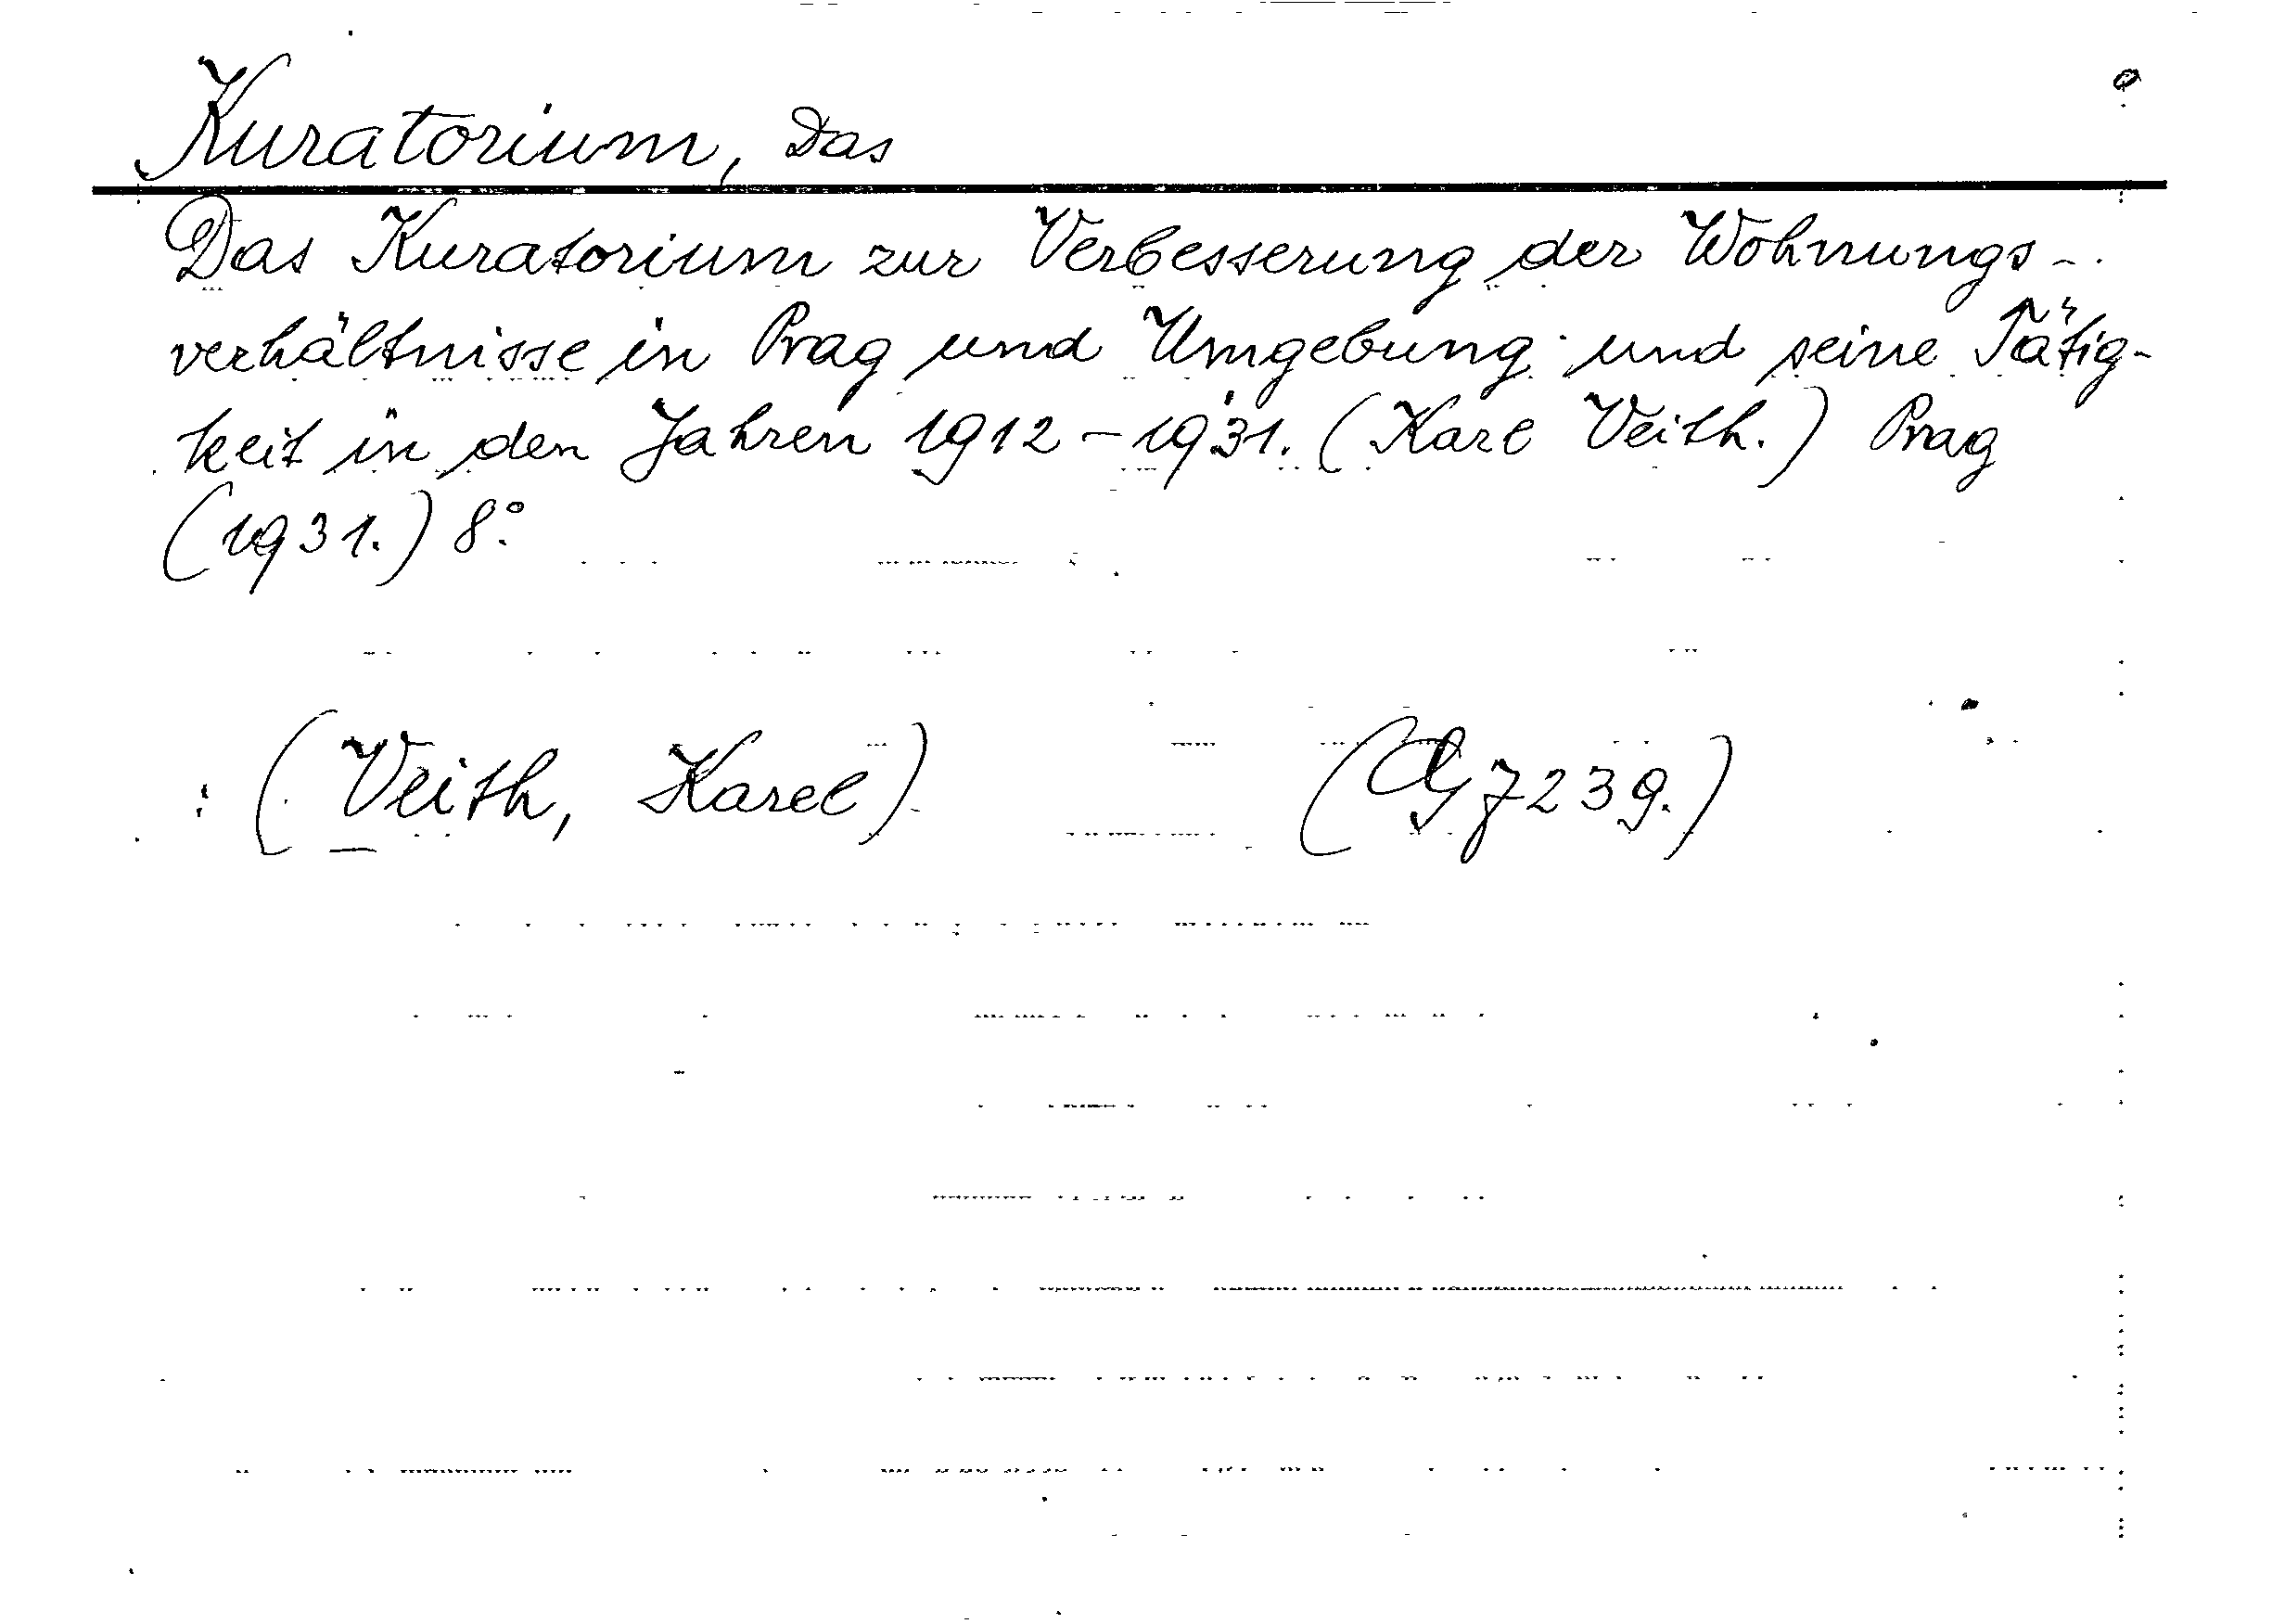 Kuratorium, Das
Das Kuratorium zur Verbesserung der Wohnungs-
verhältnisse in Prag und Umgebung und seine Tätig-
keit in den Jahren 1912-1931. (Karl Veith.) Prag
(1931.) 8°.
(Veith, Karel) (G 7239.)